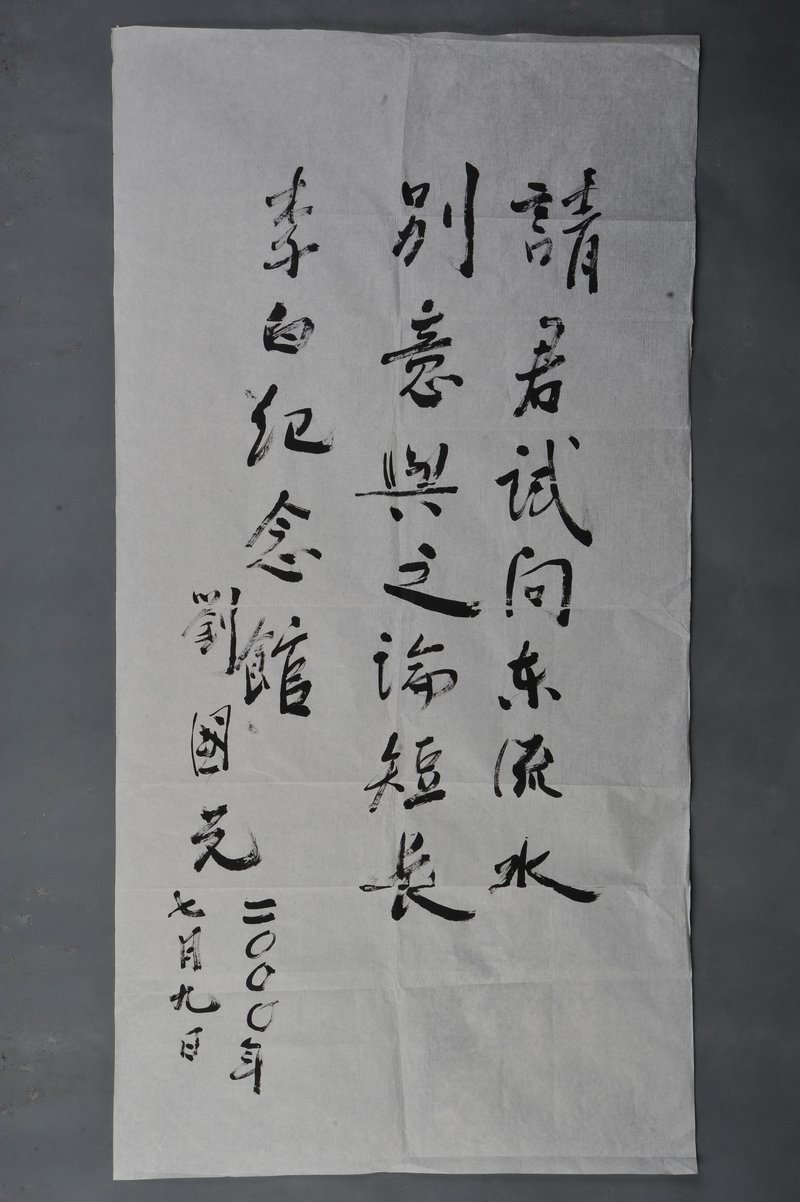 請君试问东流水
别意與之论短长
李白纪念館
劉國元
二〇〇〇年
七月九日